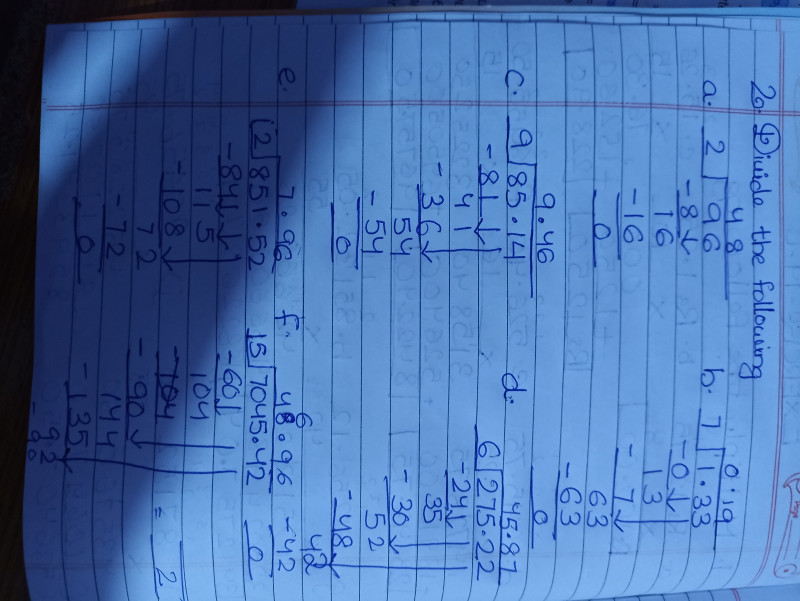 2. Divide the following
a. 48
2)96
-8
16
-16
0
b. 0.19
7)1.33
-0
13
-7
63
-63
0
c. 9.46
9)85.14
-81
41
-36
54
-54
0
d. 45.87
6)275.22
-24
35
-30
52
-48
42
-42
0
e. 7.96
12)851.52
-84
115
-108
72
-72
0
f. 6
48.96
15)7045.42
-60
104
-90
144
-135
92
-90
= 2